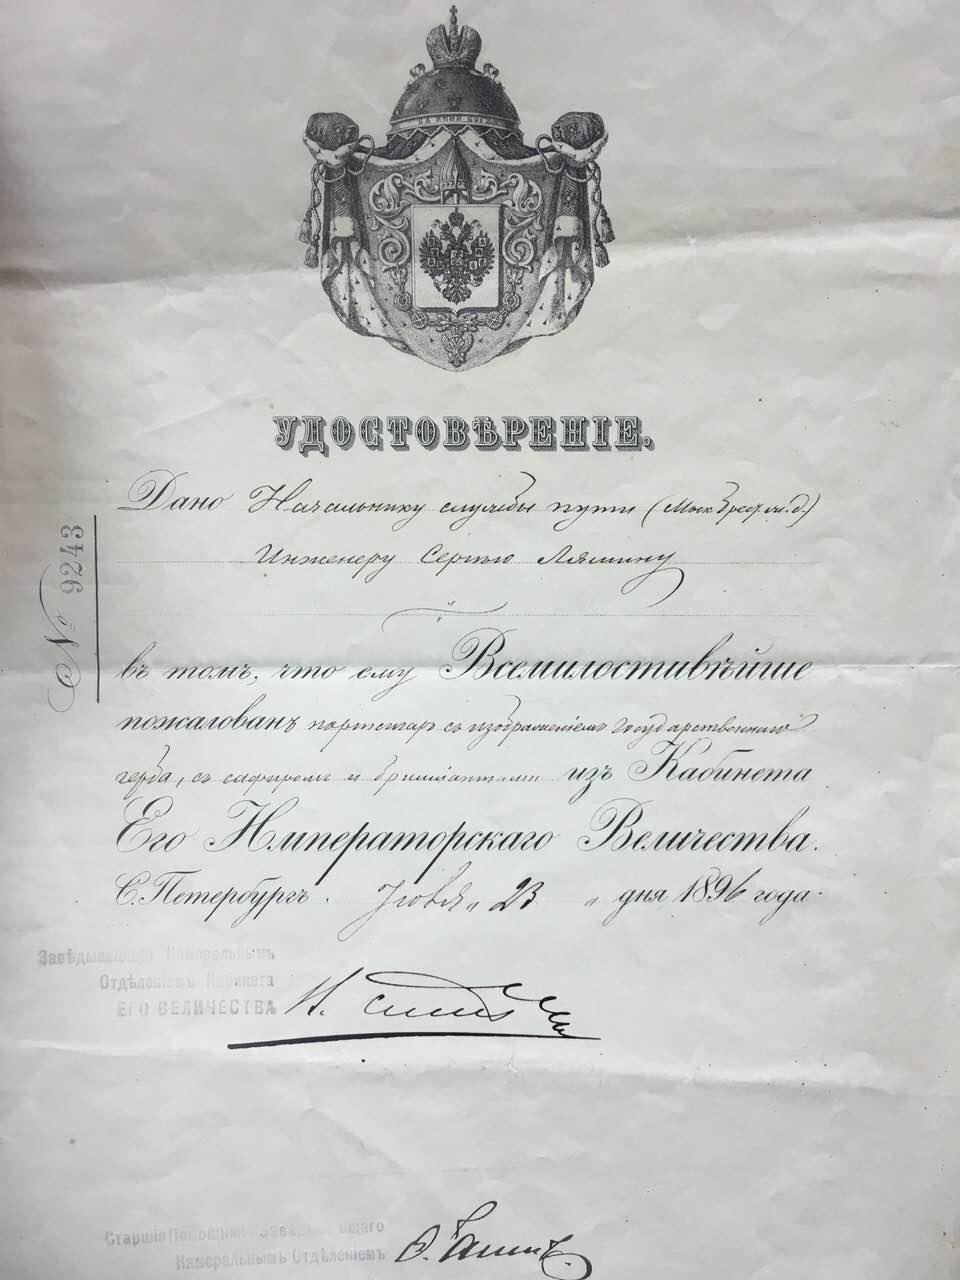 УДОСТОВѢРЕНІЕ.
№ 9243
Дано Начальнику службы пути (Моск. Брест. ж. д.)
Инженеру Сергѣю Лямину
въ томъ, что ему Всемилостивѣйше
пожалованъ портсигаръ съ изображеніемъ Государственнаго
герба, съ сафиромъ и брилліантами изъ Кабинета
Его Императорскаго Величества.
С. Петербургъ. Іюня „ 23 „ дня 1896 года.
Завѣдывающій Камеральнымъ
Отдѣленіемъ Кабинета
ЕГО ВЕЛИЧЕСТВА
Старшій Помощникъ Завѣдывающаго
Камеральнымъ Отдѣленіемъ